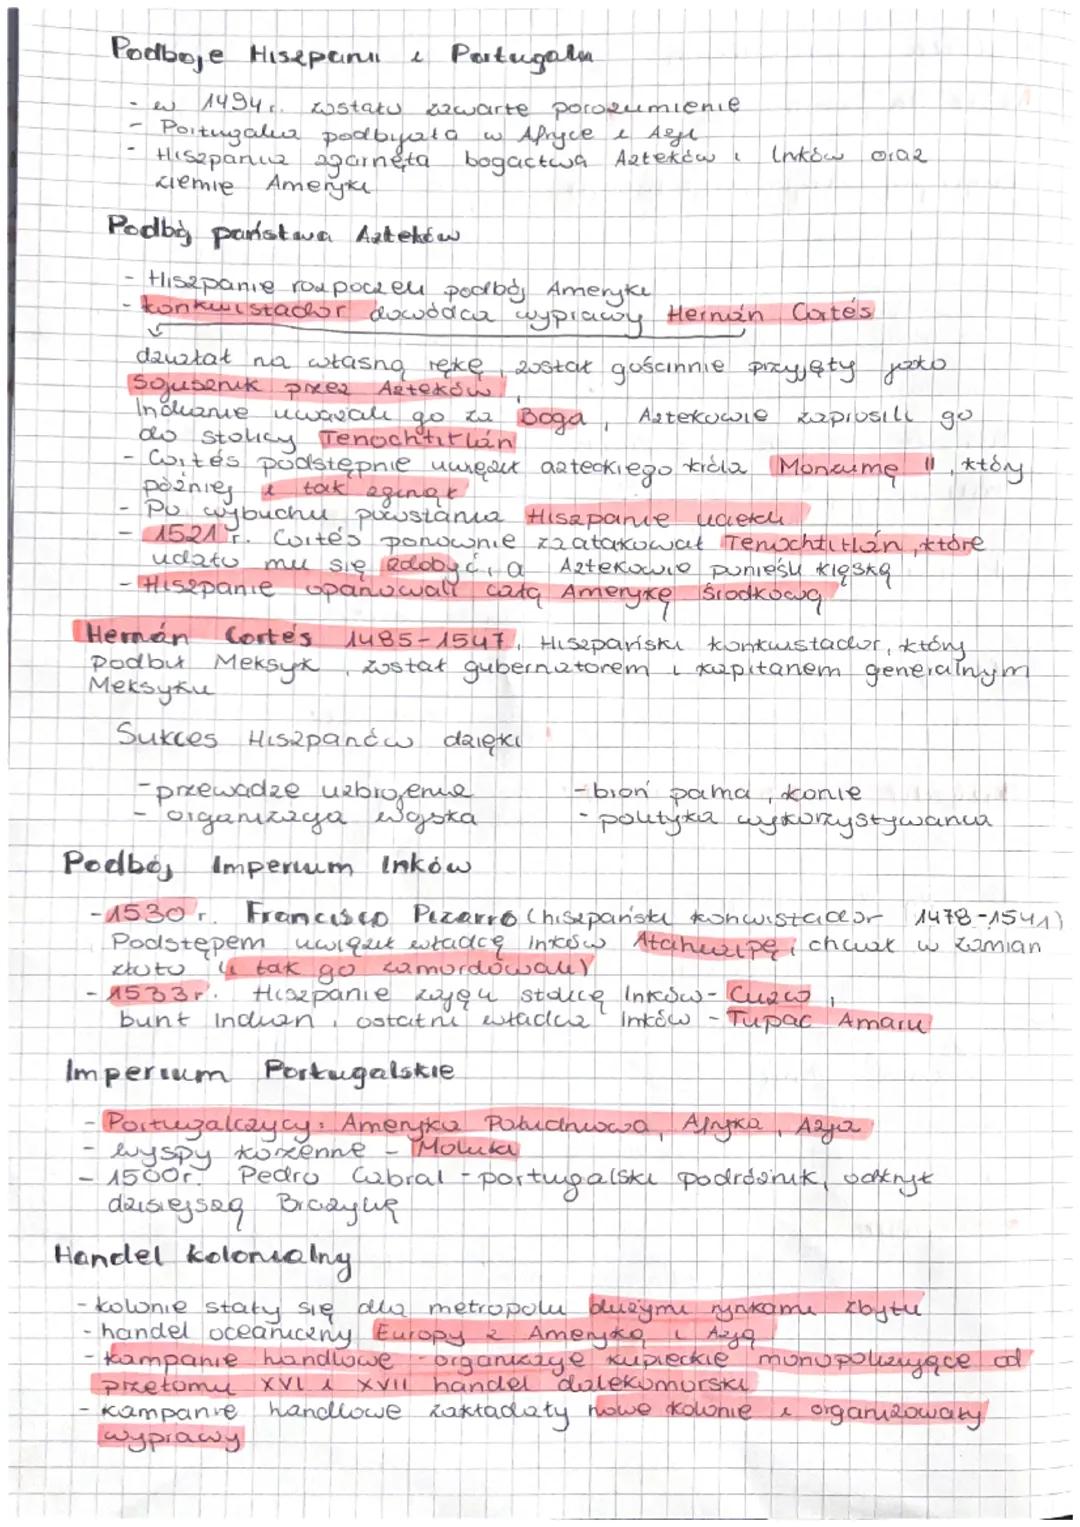 Podboje Hiszpanii i Portugalii
- w 1494 r. zostało zawarte porozumienie
- Portugalia podbijała w Afryce i Azji
- Hiszpania zgarnęła bogactwa Azteków i Inków oraz
ziemie Ameryki
Podbój państwa Azteków
- Hiszpanie rozpoczeli podbój Ameryki
- konkwistador dowódca wyprawy Hernán Cortés
działał na własną rękę, został gościnnie przyjęty jako
Sojusznik przez Azteków,
Indianie uważali go za Boga, Aztekowie zaprosili go
do stolicy Tenochtitlán
- Cortés podstępnie uwięził azteckiego króla Monzumę II, który
później i tak zginął
- Po wybuchu powstania Hiszpanie uciekli
- 1521 r. Cortés ponownie zaatakował Tenochtitlán, które
udało mu się zdobyć, a Aztekowie ponieśli klęskę
- Hiszpanie opanowali całą Amerykę Środkową
Hernán Cortés 1485-1547, Hiszpański konkwistador, który
podbił Meksyk, został gubernatorem i kapitanem generalnym
Meksyku
Sukces Hiszpanów dzięki
- przewadze uzbrojenia - broń palna, konie
- organizacja wojska - polityka wykorzystywania
Podbój Imperium Inków
- 1530 r. Francisco Pizarro (hiszpański konwistador 1478-1541)
Podstępem uwięził władcę Inków Atahualpę i chciał w zamian
złoto (i tak go zamordowali)
- 1533 r. Hiszpanie zajęli stolicę Inków - Cuzco,
bunt Indian, ostatni władca Inków - Tupac Amaru
Imperium Portugalskie
- Portugalczycy: Ameryka Południowa, Afryka, Azja
- wyspy korzenne - Moluki
- 1500r. Pedro Cabral - portugalski podróżnik, odkrył
dzisiejszą Brazylię
Handel kolonialny
- kolonie stały się dla metropolii dużymi rynkami zbytu
- handel oceaniczny Europy z Ameryką i Azją
- kampanie handlowe - organizacje kupieckie monopolizujące od
przełomu XVI i XVII handel dalekomorski
- kampanie handlowe zakładały nowe kolonie i organizowały
wyprawy